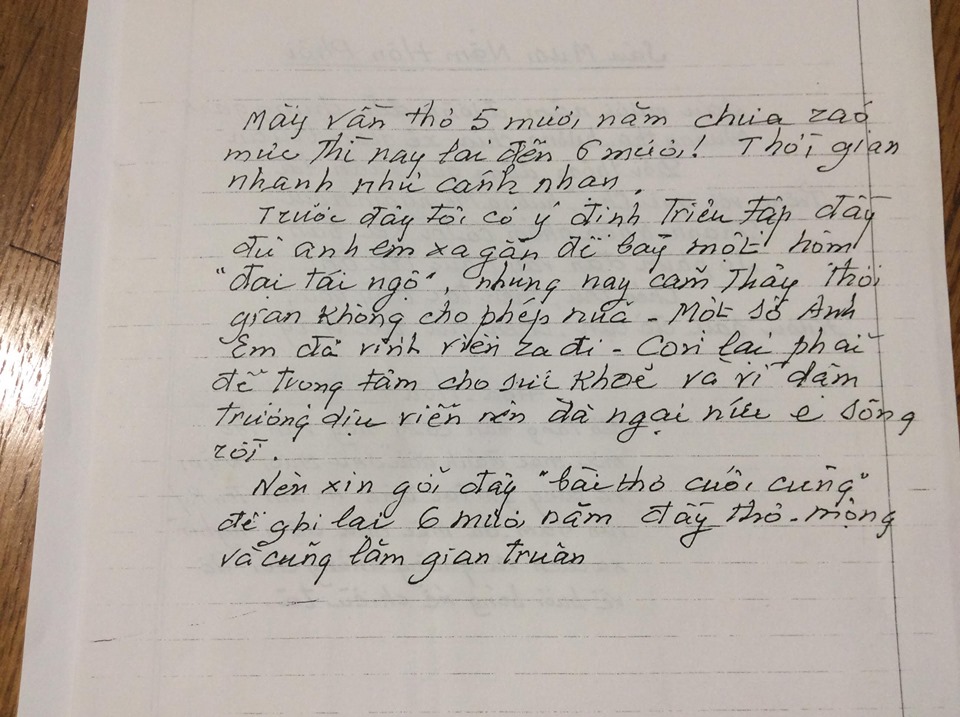 Mấy vần thơ 5 mươi năm chưa ráo
mực thì nay lại đến 6 mươi! Thời gian
nhanh như cánh nhạn.
Trước đây tôi có ý định triệu tập đầy
đủ anh em xa gần để bầy một hôm
"đại tái ngộ", nhưng nay cảm thấy thời
gian không cho phép nữa - Một số Anh
Em đã vĩnh viễn ra đi - Còn lại phải
để trọng tâm cho sức khoẻ và vì dậm
trường dịu viễn nên đã ngại núi e sông
rồi.
Nên xin gởi đây "bài thơ cuối cùng"
để ghi lại 6 mươi năm đầy thơ-mộng
và cũng lắm gian truân